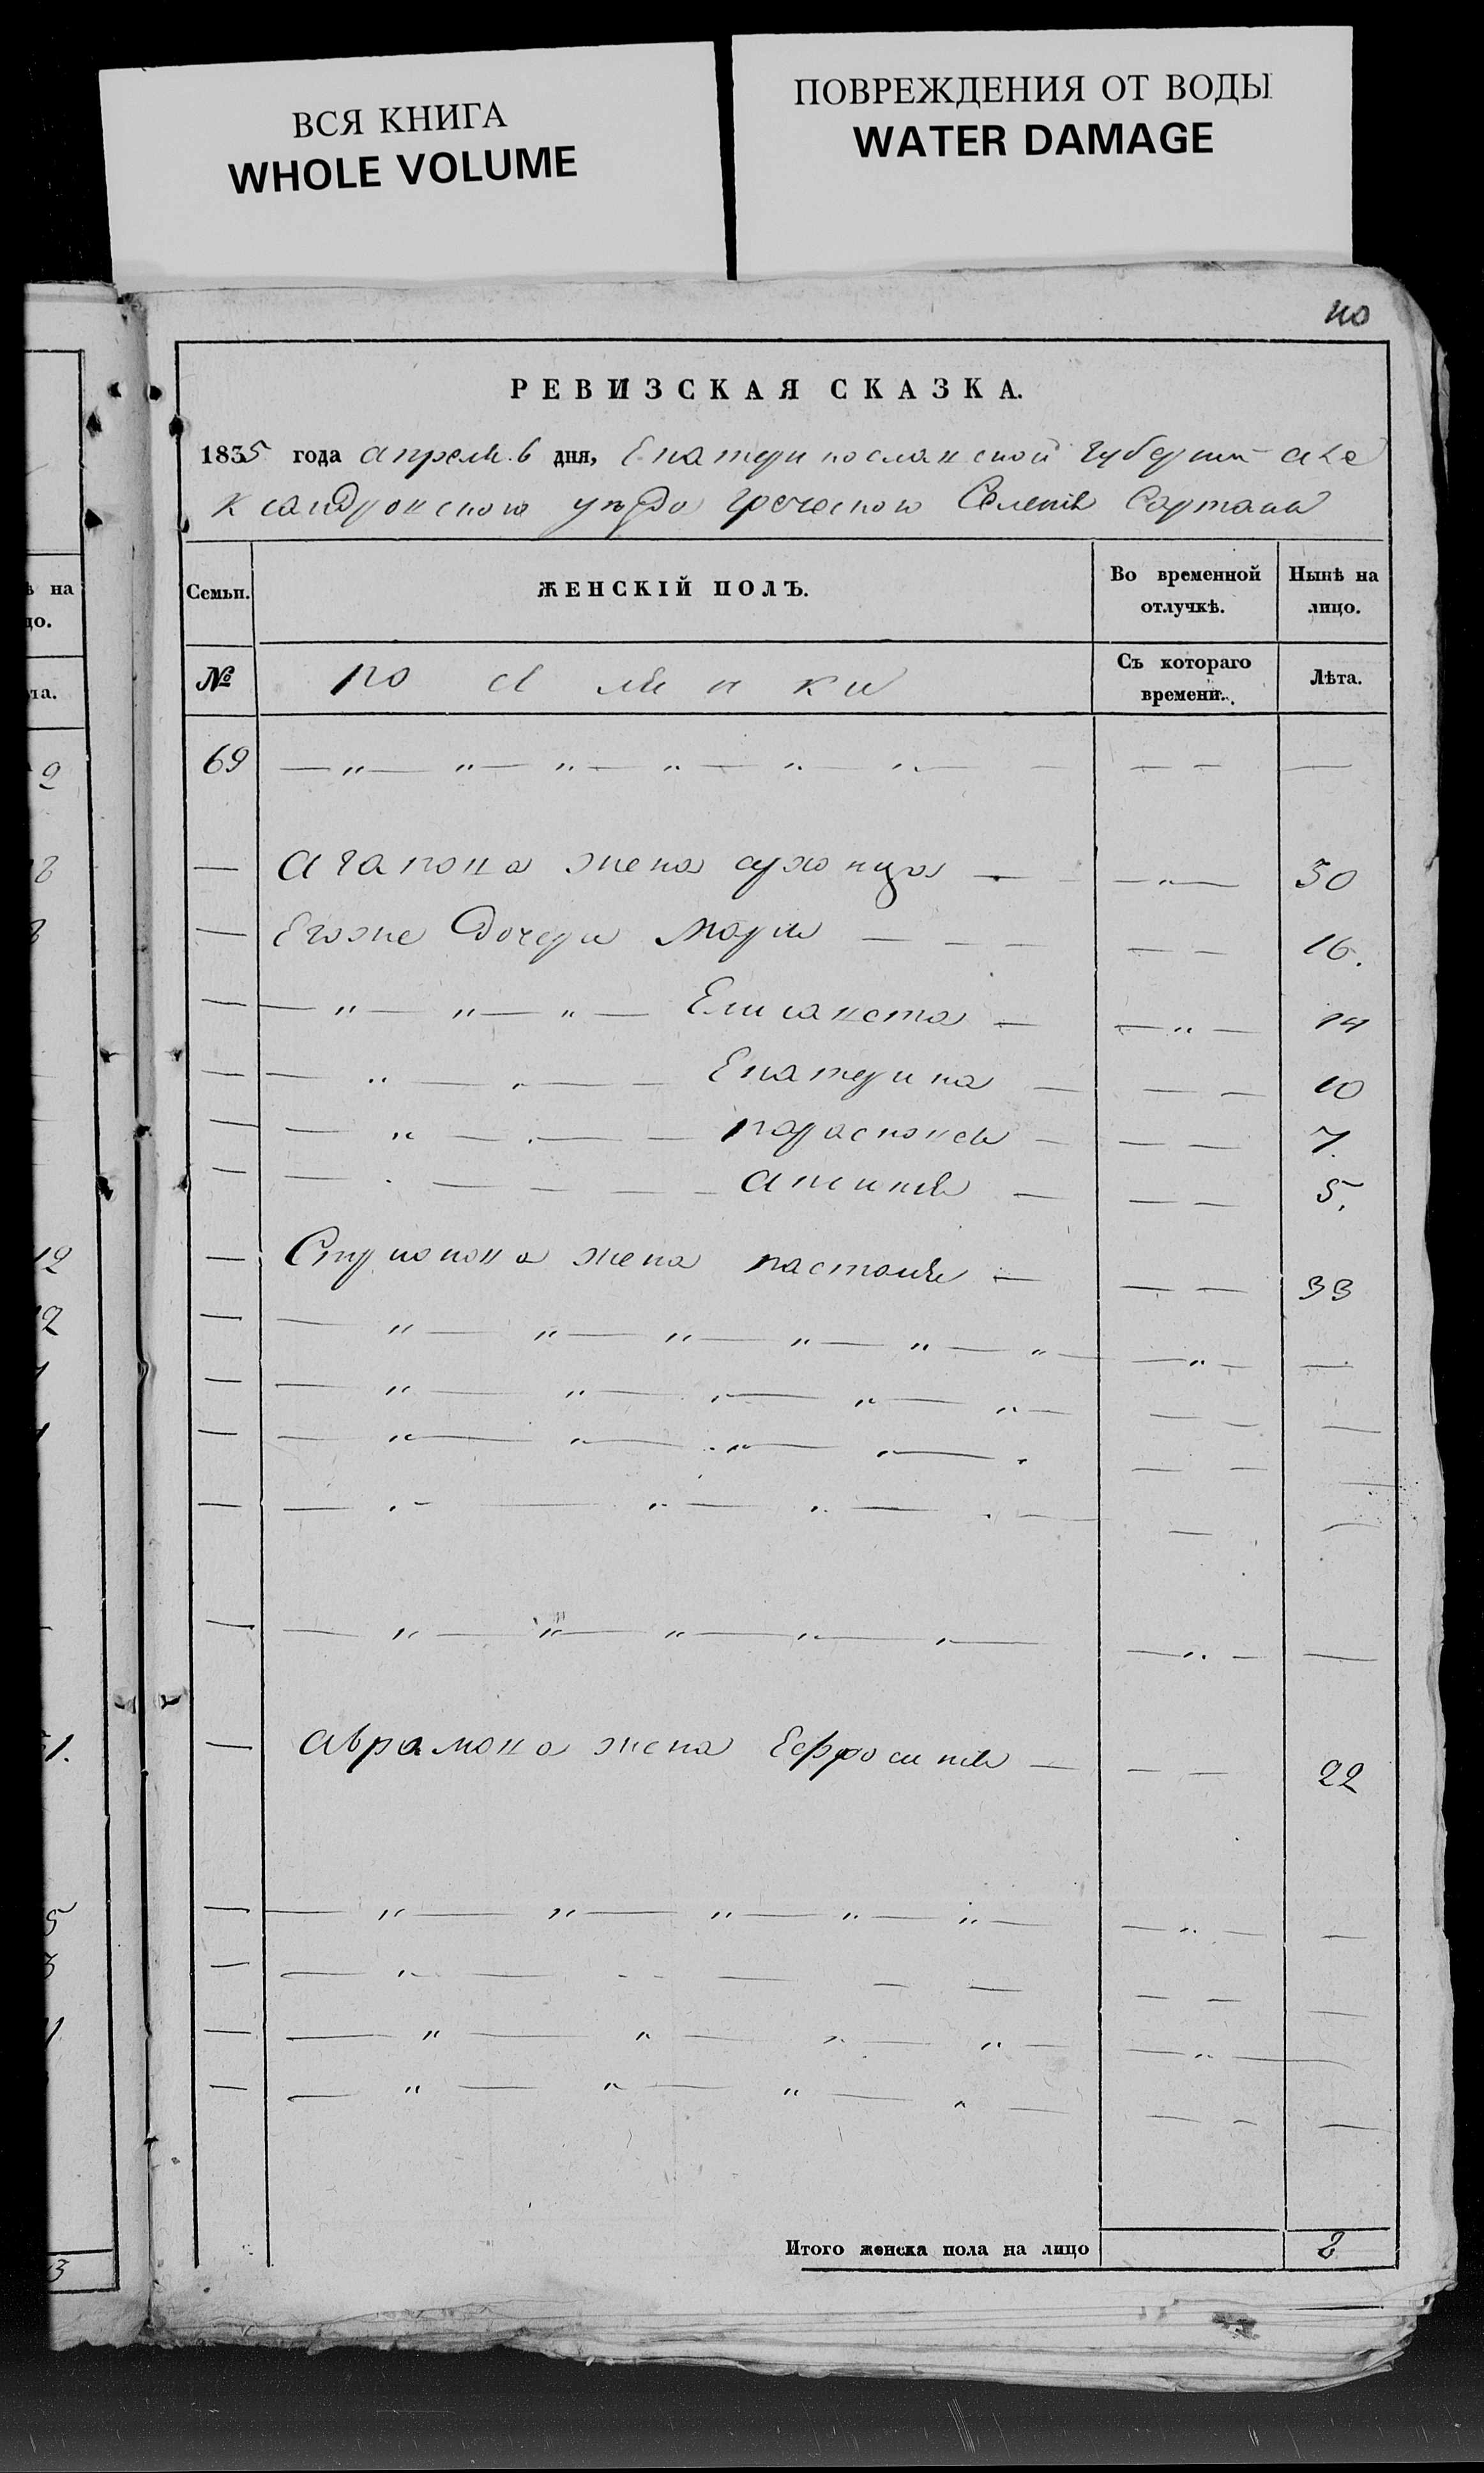 ВСЯ КНИГА
WHOLE VOLUME
ПОВРЕЖДЕНИЯ ОТ ВОДЫ
WATER DAMAGE
110
РЕВИЗСКАЯ СКАЗКА.
1835 года апреля 6 дня, Екатеринославской губернии але
ксандровского уезда греческого Селения Сартаны
Семьи. ЖЕНСКІЙ ПОЛЪ. Во временной отлучкѣ. Нынѣ на лицо.
№ Съ котораго времени. Лѣта.
69
агапова жена 50
Егоже Дочери Марія 16.
Елисавета 14
Екатерина 10
парасковея 7.
5.
жена настасія 33
аврамова жена Ефросинія 22
Итого женска пола на лицо 8
ѣ на
цо.
та.